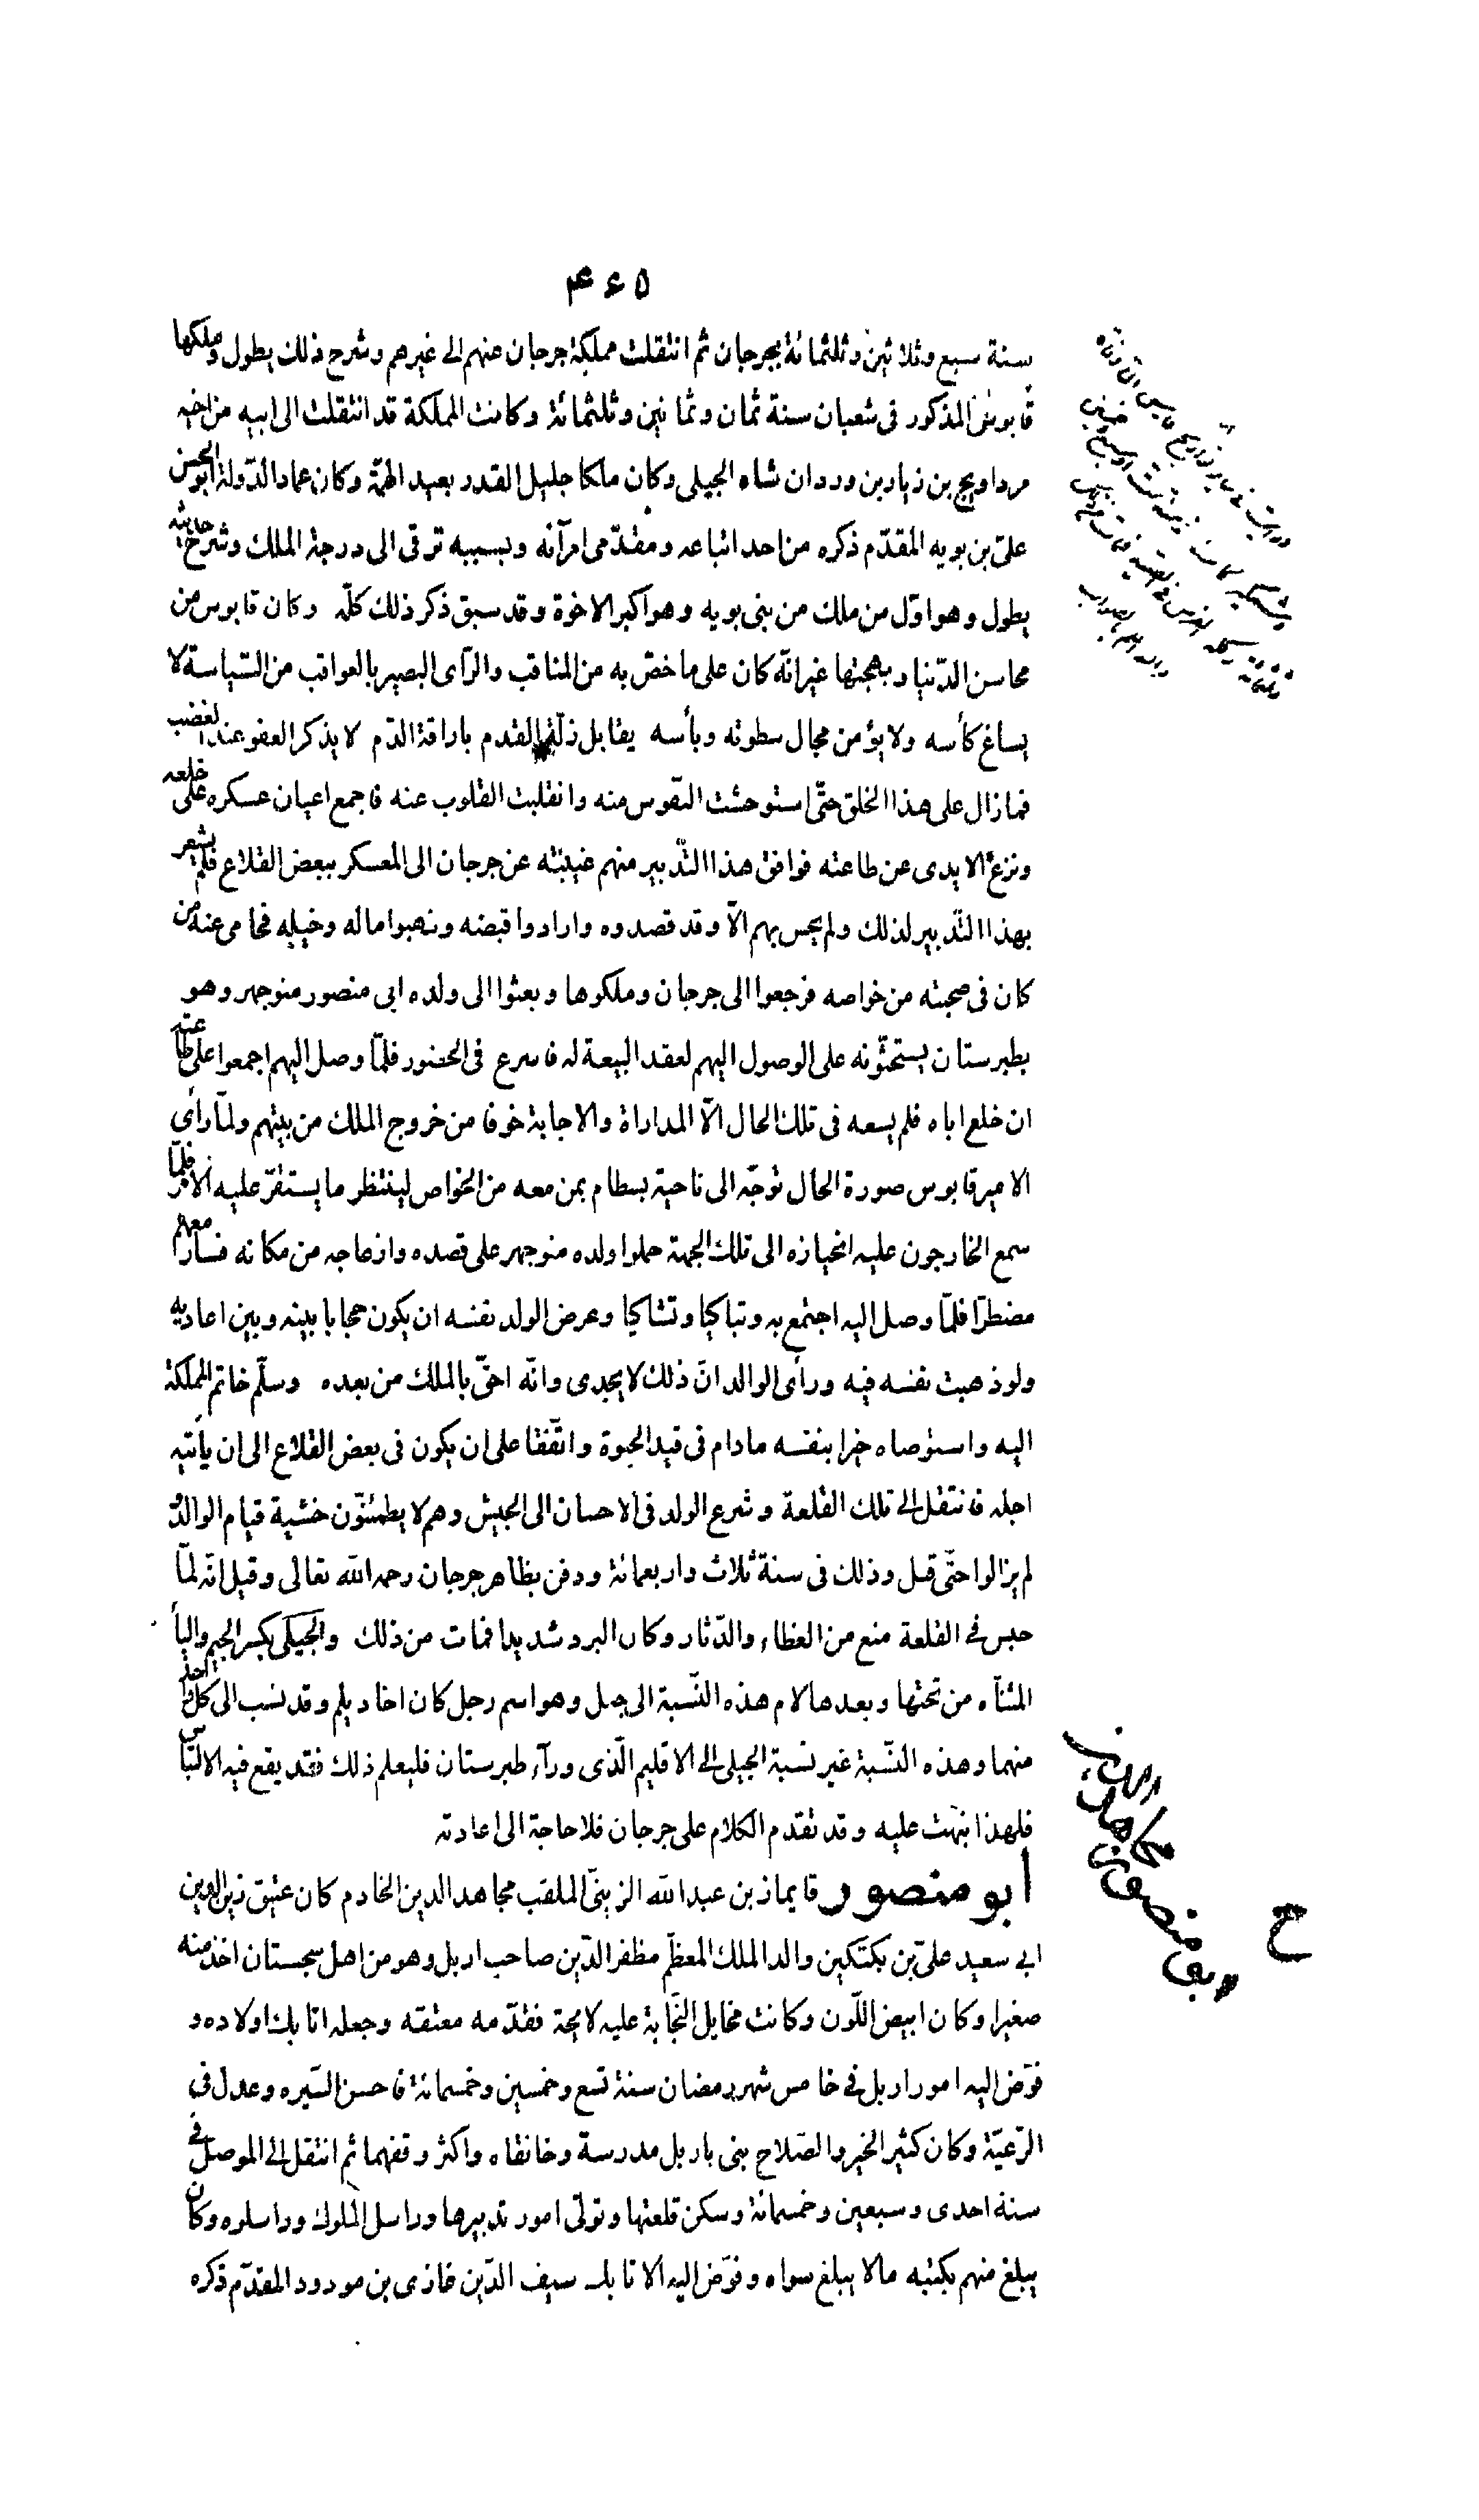 ۴۶۵
سنة سبع وثلاثين وثلثمائة بجرجان ثم انتقلت مملكة جرجان عنهم الى غيرهم وشرح ذلك يطول وملكها
قابوس المذكور فى شعبان سنة ثمان وثمانين وثلثمائة وكانت المملكة قد انتقلت الى ابيه من اخيه
مرداويج بن زيار بن وردان شاه الجيلى وكان ملكا جليل القدر بعيد الهمّة وكان عماد الدّولة ابو الحسن
علىّ بن بويه المقدّم ذكره من احد اتباعه ومقدّمى امرآئه وبسببه ترقى الى درجة الملك وشرح حاله
يطول وهو اوّل من ملك من بنى بويه وهو اكبر الاخوة وقد سبق ذكر ذلك كلّه وكان قابوس من
محاسن الدّنيا وبهجتها غير انّه كان على ما خصّ به من المناقب والرّأى البصير بالعواقب من السّياسة لا
يساغ كأسه ولا يؤمن مجال سطوته وبأسه يقابل زلّة القدم باراقة الدّم لا يذكر العفو عند الغضب
فما زال على هذا الخلق حتّى استوحشت النّفوس منه وانقلبت القلوب عنه فاجمع اعيان عسكره على خلعه
ونزع الايدى عن طاعته فوافق هذا التّدبير منهم غيبته عن جرجان الى المعسكر ببعض القلاع فلم يشعر
بهذا التّدبير لذلك ولم يحس بهم الّا وقد قصدوه وارادوا قبضه ونهبوا ماله وخيله فحامى عنه من
كان فى صحبته من خواصه فرجعوا الى جرجان وملكوها وبعثوا الى ولده ابى منصور منوجهر وهو
بطبرستان يستحثّونه على الوصول اليهم لعقد البيعة له فاسرع فى الحضور فلمّا وصل اليهم اجمعوا على طاعته
ان خلع اباه فلم يسعه فى تلك الحال الّا المداراة والاجابة خوفا من خروج الملك من بيتهم ولمّا رأى
الامير قابوس صورة الحال توجّه الى ناحية بسطام بمن معه من الخواص لينتظر ما يستقرّ عليه الامر فلمّا
سمع الخارجون عليه انحيازه الى تلك الجهة حملوا ولده منوجهر على قصده وازعاجه من مكانه فسار معهم
مضطرّا فلمّا وصل اليه اجتمع به وتباكيا وتشاكيا وعرض الولد نفسه ان يكون حجابا بينه وبين اعاديه
ولو ذهبت نفسه فيه ورأى الوالد انّ ذلك لا يجدى وانّه احقّ بالملك من بعده وسلّم خاتم المملكة
اليه واستوصاه خيرا بنفسه مادام فى قيد الحيوة واتّفقا على ان يكون فى بعض القلاع الى ان يأتيه
اجله فانتقل الى تلك القلعة وشرع الولد فى الاحسان الى الجيش وهم لا يطمئنّون خشية قيام الوالد
لم يزالوا حتّى قتل وذلك فى سنة ثلاث واربعمائة ودفن بظاهر جرجان رحمه الله تعالى وقيل انّه لمّا
حبس فى القلعة منع من الغطاء والدّثار وكان البرد شديدا فمات من ذلك والجيلى بكسر الجيم والياء
المثنّاه من تحتها وبعدها لام هذه النّسبة الى جيل وهو اسم رجل كان اخا ديلم وقد نسب الى كلّ احد
منهما وهذه النّسبة غير نسبة الجيلى الى الاقليم الّذى ورآء طبرستان فليعلم ذلك فقد يقع فيه الالتباس
فلهذا نبّهت عليه وقد تقدم الكلام على جرجان فلا حاجة الى اعادته
أبو منصور قايماز بن عبد الله الزينىّ الملقب مجاهد الدين الخادم كان عتيق زين الدين
ابى سعيد علىّ بن بكتكين والد الملك المعظّم مظفر الدّين صاحب اربل وهو من اهل سجستان اخذ منه
صغيرا وكان ابيض اللّون وكانت مخايل النّجابة عليه لايحة فقدّمه معتقه وجعله اتابك اولاده و
فوّض اليه امور اربل فى خامس شهر رمضان سنة تسع وخمسين وخمسمائة فاحسن السّيره وعدل فى
الرّعيّة وكان كثير الخير والصّلاح بنى باربل مدرسة وخانقاه واكثر وقفهما ثم انتقل الى الموصل فى
سنة احدى وسبعين وخمسمائة وسكن قلعتها وتولّى امور تدبيرها وراسل الملوك وراسلوه وكان
يبلغ منهم بكتبه مالا يبلغ سواه وفوّض اليه الاتابك سيف الدّين غازى بن مودود المقدّم ذكره
ابى منصور
مجاهد الدين
ح